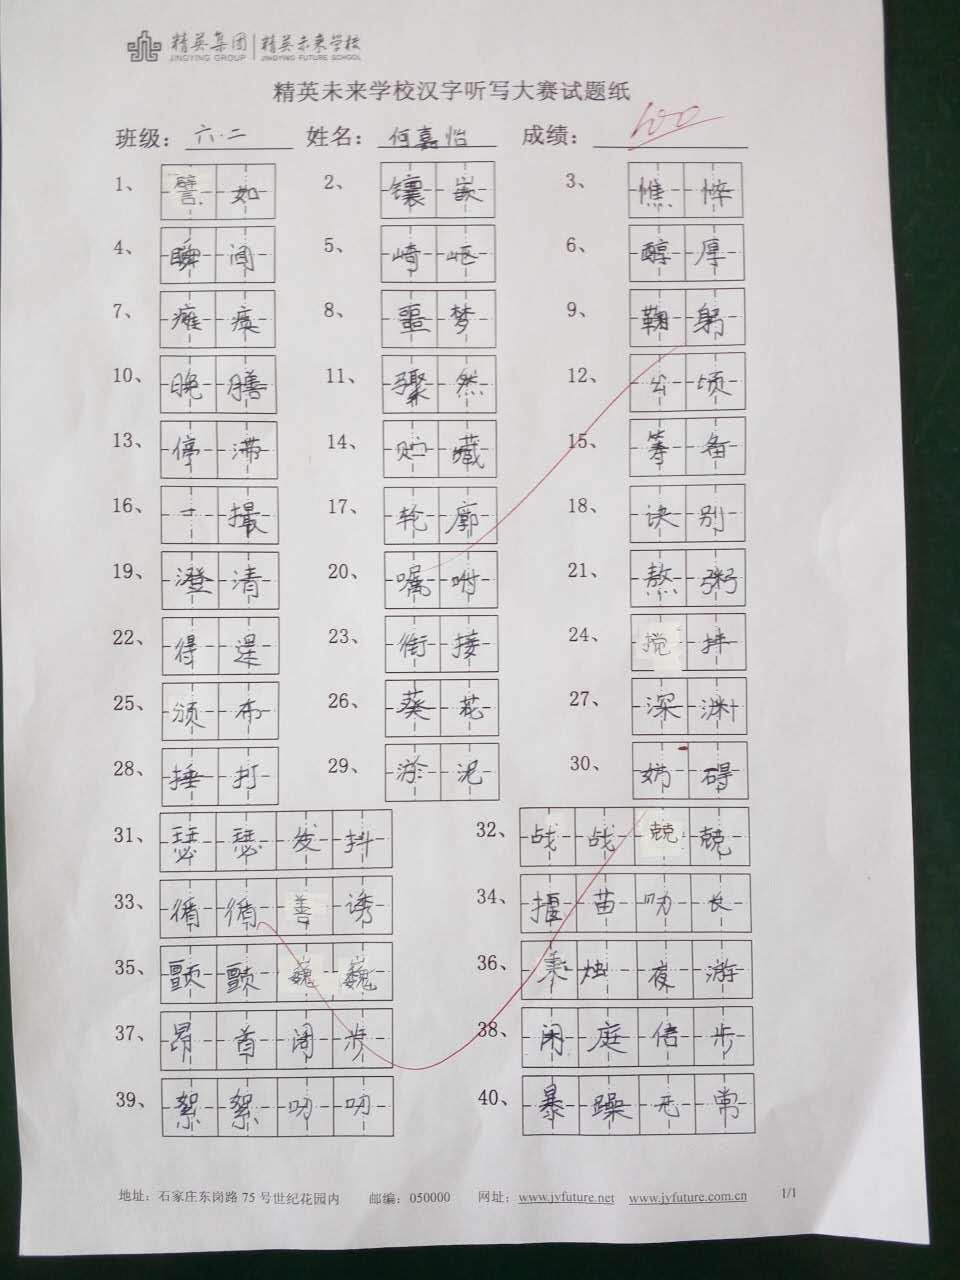 精英集团 精英未来学校
JINGYING GROUP JINGYING FUTURE SCHOOL
精英未来学校汉字听写大赛试题纸
班级：六.二 姓名：何嘉怡 成绩：100
1、譬如 2、镶嵌 3、憔悴
4、瞬间 5、崎岖 6、醇厚
7、瘫痪 8、噩梦 9、鞠躬
10、晚膳 11、骤然 12、公顷
13、停滞 14、贮藏 15、筹备
16、一撮 17、轮廓 18、诀别
19、澄清 20、嘱咐 21、熬粥
22、得逞 23、衔接 24、搅拌
25、颁布 26、葵花 27、深渊
28、捶打 29、淤泥 30、妨碍
31、瑟瑟发抖 32、战战兢兢
33、循循善诱 34、揠苗助长
35、颤颤巍巍 36、秉烛夜游
37、昂首阔步 38、闲庭信步
39、絮絮叨叨 40、暴躁无常
地址：石家庄东岗路 75 号世纪花园内 邮编：050000 网址：www.jyfuture.net www.jyfuture.com.cn 1/1